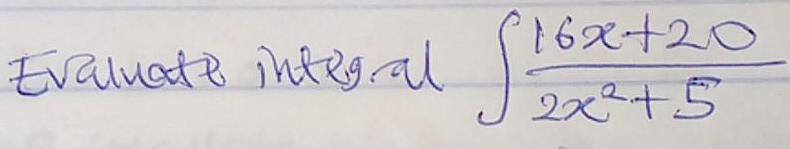 Evaluate integral ∫ 16x+20
2x²+5